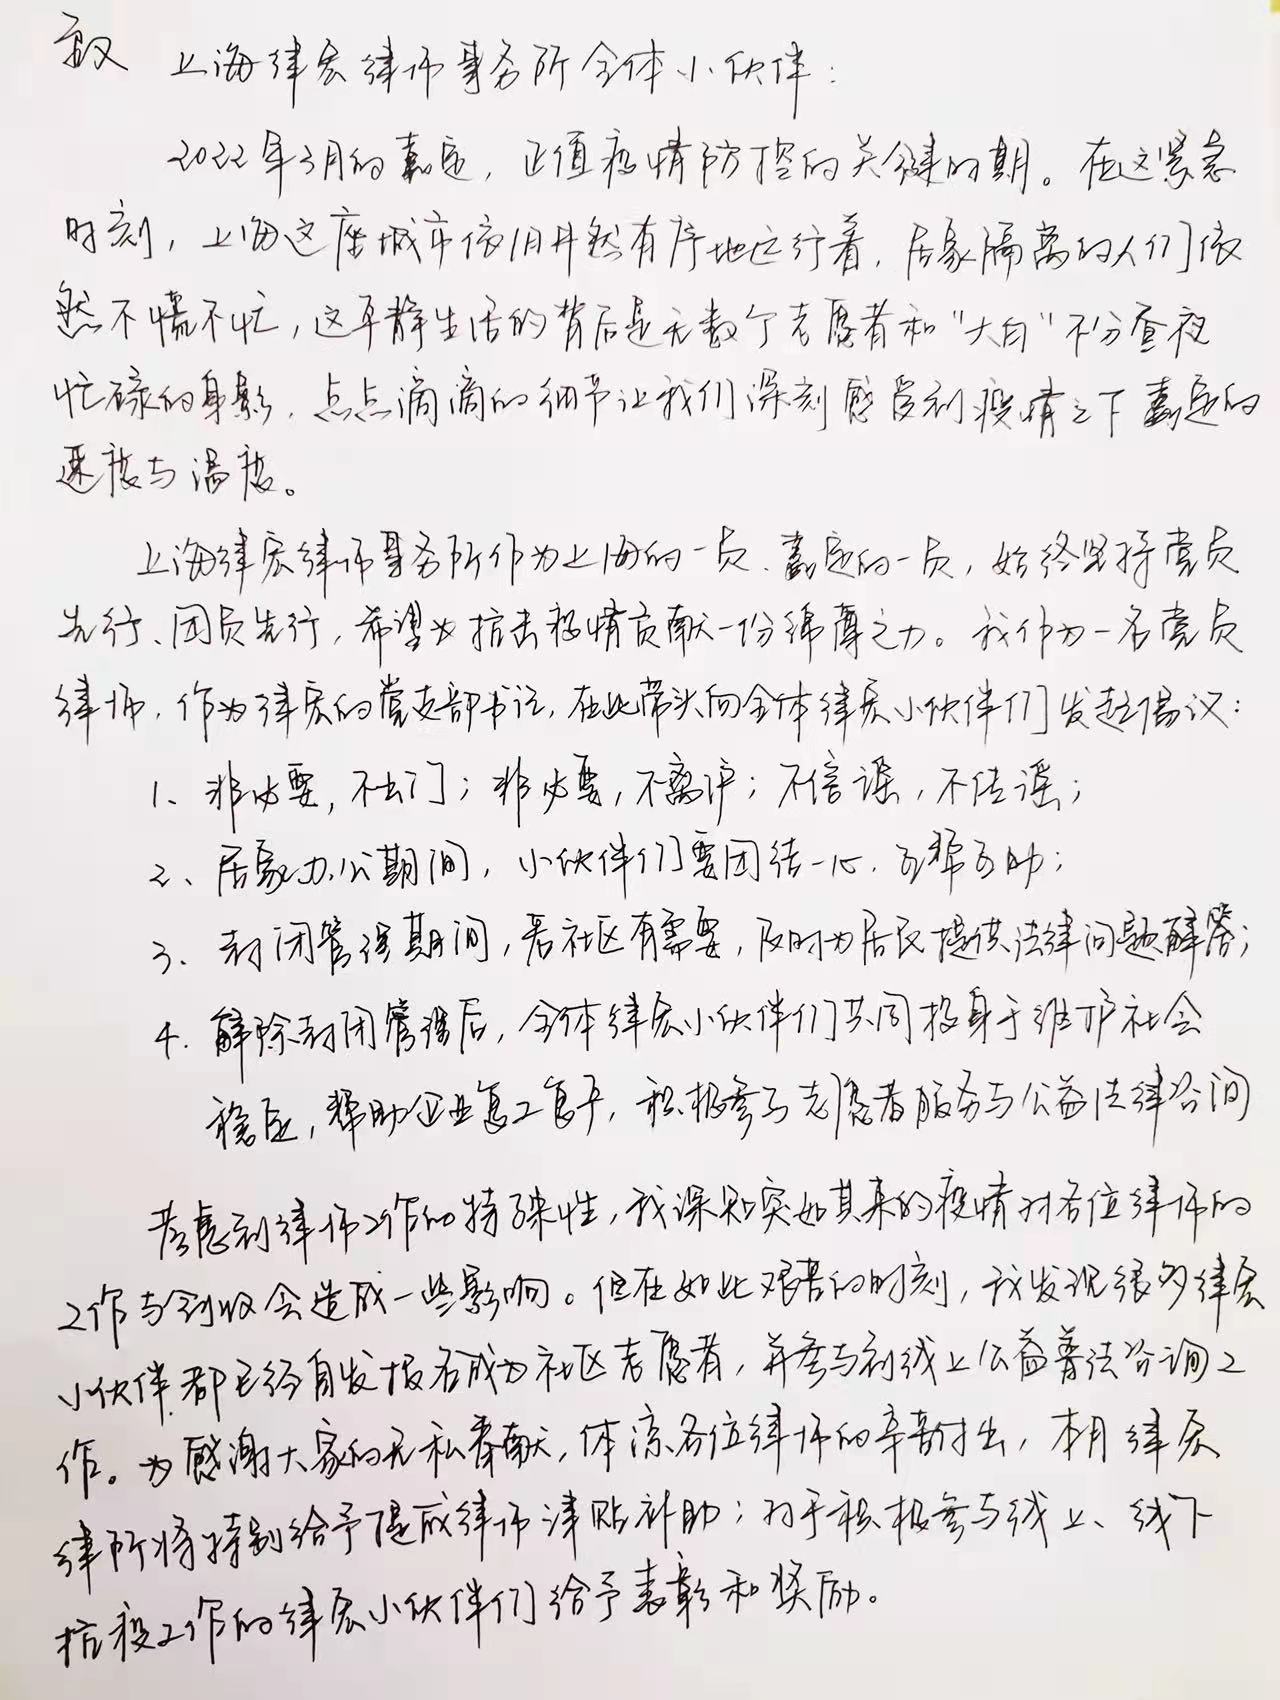 致 上海律宏律师事务所全体小伙伴：
2022年3月的嘉定，正值疫情防控的关键时期。在这紧急
时刻，上海这座城市依旧井然有序地运行着，居家隔离的人们依
然不慌不忙，这平静生活的背后是无数个志愿者和“大白”不分昼夜
忙碌的身影，点点滴滴的细节让我们深刻感受到疫情之下嘉定的
速度与温度。
上海律宏律师事务所作为上海的一员、嘉定的一员，始终坚持党员
先行、团员先行，希望为抗击疫情贡献一份绵薄之力。我作为一名党员
律师，作为律宏的党支部书记，在此带头向全体律宏小伙伴们发起倡议：
1、非必要，不出门；非必要，不离沪；不信谣，不传谣；
2、居家办公期间，小伙伴们要团结一心，互帮互助；
3、封闭管理期间，若社区有需要，及时为居民提供法律问题解答；
4、解除封闭管理后，全体律宏小伙伴们共同投身于维护社会
稳定，帮助企业复工复产，积极参与志愿者服务与公益法律咨询
考虑到律师工作的特殊性，我深知突如其来的疫情对各位律师的
工作与创收会造成一些影响。但在如此艰苦的时刻，我发现很多律宏
小伙伴都已经自发报名成为社区志愿者，并参与到线上公益普法咨询工
作。为感谢大家的无私奉献，体谅各位律师的辛苦付出，本月律宏
律所将特别给予提成律师津贴补助；对于积极参与线上、线下
抗疫工作的律宏小伙伴们给予表彰和奖励。